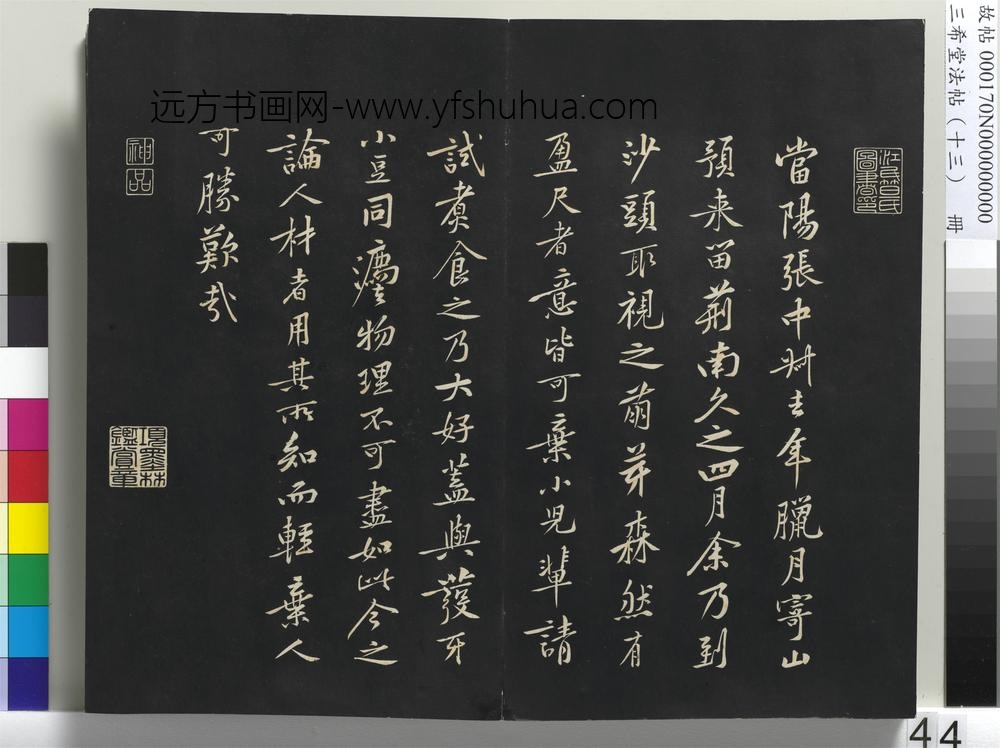 當陽張中叔去年臘月寄山
預来留荊南久之四月余乃到
沙頭取視之萠芽森然有
盈尺者意皆可棄小児輩請
試煑食之乃大好蓋與發牙
小豆同𤅊物理不可盡如此今之
論人材者用其所知而輕棄人
可勝歎哉
神品
項墨林鑑賞章
远方书画网-www.yfshuhua.com
故帖 000170N000000000
三希堂法帖（十三） 冊
44